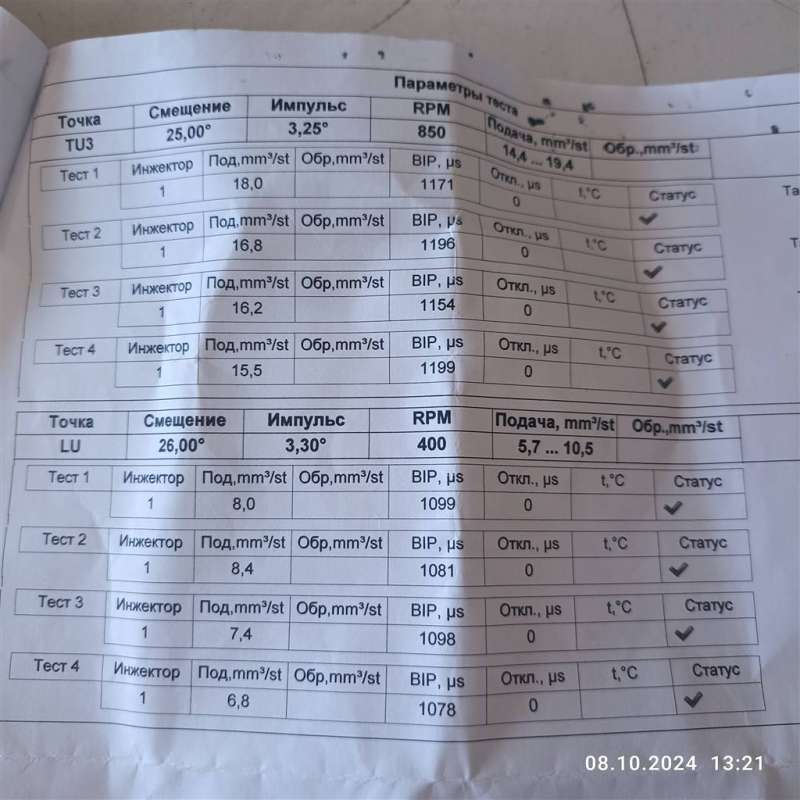 Параметры теста
Точка Смещение Импульс RPM Подача, mm³/st Обр.,mm³/st
TU3 25,00° 3,25° 850 14,4 ... 19,4
Тест 1 Инжектор Под,mm³/st Обр,mm³/st BIP, µs Откл., µs t,°C Статус
1 18,0 1171 0 ✔
Тест 2 Инжектор Под,mm³/st Обр,mm³/st BIP, µs Откл., µs t,°C Статус
1 16,8 1196 0 ✔
Тест 3 Инжектор Под,mm³/st Обр,mm³/st BIP, µs Откл., µs t,°C Статус
1 16,2 1154 0 ✔
Тест 4 Инжектор Под,mm³/st Обр,mm³/st BIP, µs Откл., µs t,°C Статус
1 15,5 1199 0 ✔
Точка Смещение Импульс RPM Подача, mm³/st Обр.,mm³/st
LU 26,00° 3,30° 400 5,7 ... 10,5
Тест 1 Инжектор Под,mm³/st Обр,mm³/st BIP, µs Откл., µs t,°C Статус
1 8,0 1099 0 ✔
Тест 2 Инжектор Под,mm³/st Обр,mm³/st BIP, µs Откл., µs t,°C Статус
1 8,4 1081 0 ✔
Тест 3 Инжектор Под,mm³/st Обр,mm³/st BIP, µs Откл., µs t,°C Статус
1 7,4 1098 0 ✔
Тест 4 Инжектор Под,mm³/st Обр,mm³/st BIP, µs Откл., µs t,°C Статус
1 6,8 1078 0 ✔
08.10.2024 13:21